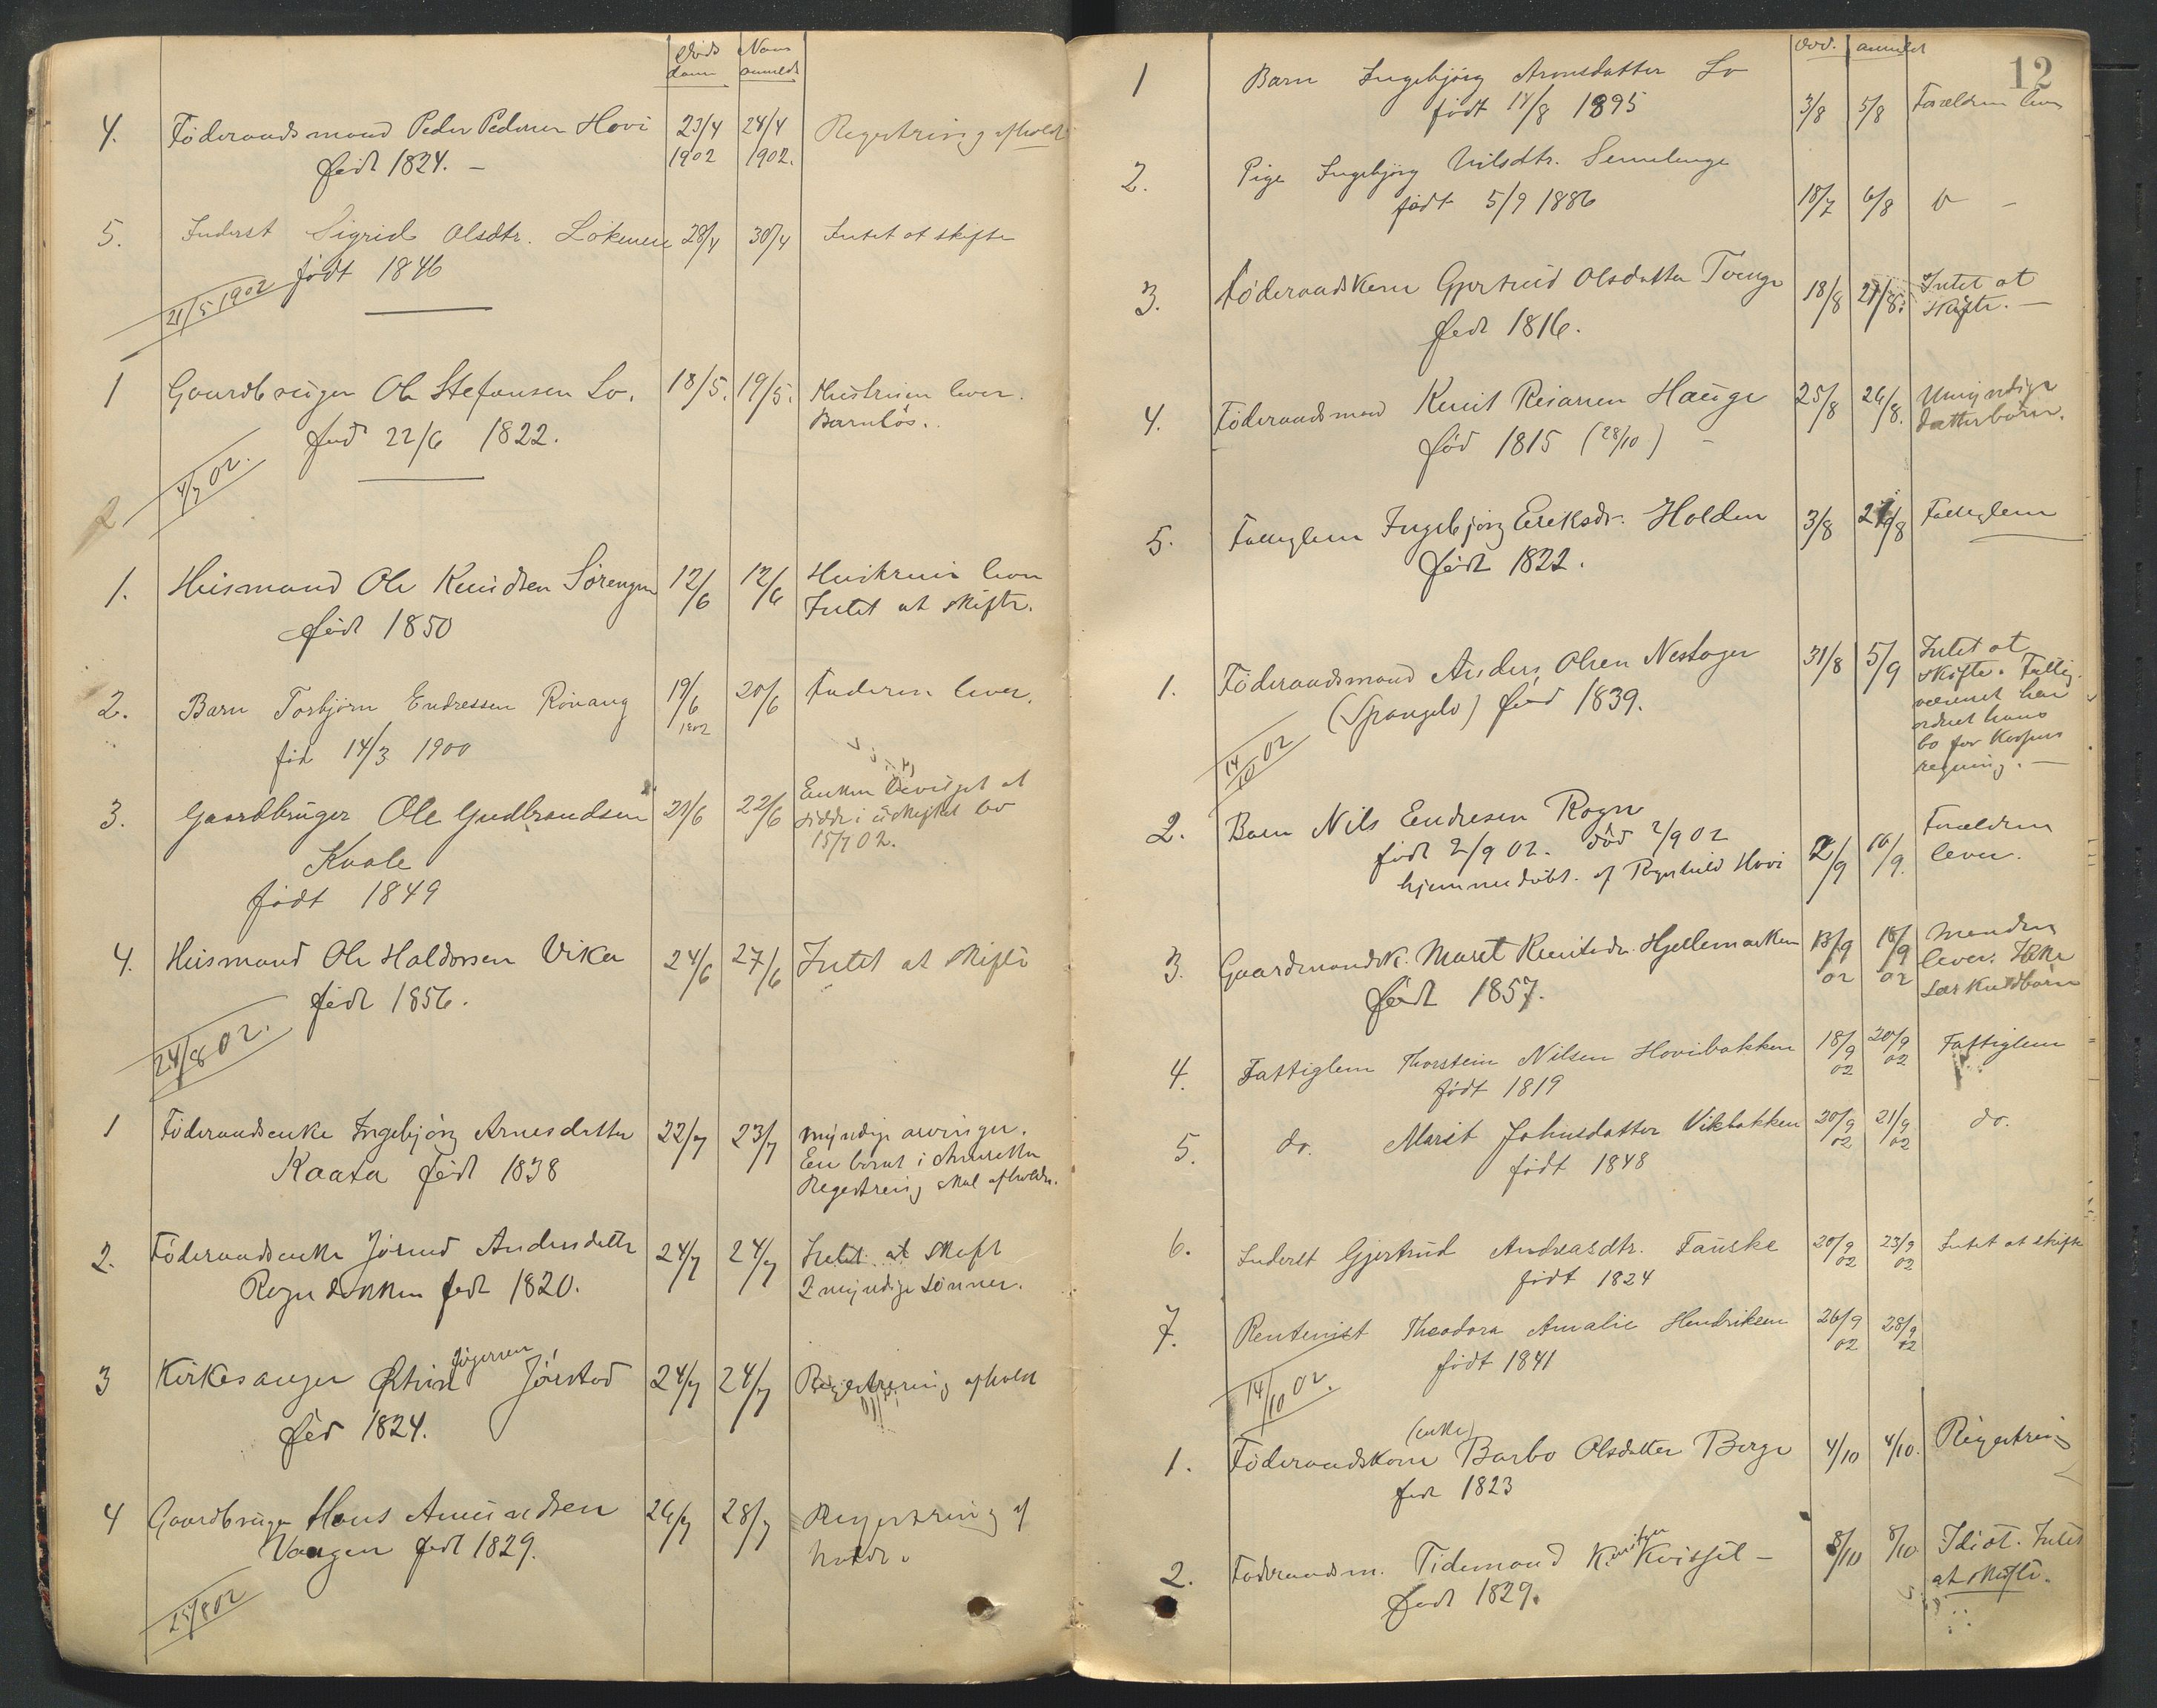 Døds
datum
Naar
anmeldt
4. Föderaadsmand Peder Pedersen Hovi 23/4 24/4 Registrering afholdt
født 1824. – 1902 1902.
5. Inderst Sigrid Olsdtr. Lökeneie 28/4 30/4 Intet at skifte
født 1846
21/5 1902
1 Gaardbruger Ole Stefansen Lo. 18/5. 19/5. Hustruen lever.
Barnløs.
født 22/6 1822.
4/7 02.
2
1. Husmand Ole Knudsen Sörengen 12/6 12/6 Hustruen lever
Intet at skifte.
født 1850
2. Barn Torbjörn Endressen Rövang 19/6 1902 20/6 Faderen lever.
föd 14/3 1900
3. Gaardbruger Ole Gudbrandsen 21/6 22/6 Enken bevilget at
sidde i uskiftet bo
15/7 02.
Kvale
født 1849
4. Husmand Ole Haldorsen Viken 24/6 27/6 Intet at skifte
født 1856.
24/8 02.
1 Föderaadsenke Ingebjörg Arnesdatter 22/7 23/7 Myndige arvinger.
En bornt i Amerika
Kaata født 1838 Registrering skal afholdes.
2. Föderaadsenke Jörund Andersdatter 24/7 24/7 Intet at skifte
Rogndokken født 1820. 2 myndige sønner.
3 Kirkesanger Østen Jögersen Jörstad 24/7 24/7 Registrering afholdt
fød 1824.
4 Gaardbruger Hans Amundsen 26/7 28/7 Registrering af
Vangen født 1829. holdt.
25/8 02
død. anmeldt
12
1 Barn Ingebjörg Arnesdatter Lo
født 14/8 1895 3/8 5/8 Forældren lever
2. Pige Ingebjörg Nilsdtr. Semeleenge
født 5/9 1886 18/7 6/8 do –
3. Föderaadskone Gjertrud Olsdatter Tvenge 18/8 21/8. Intet at
skifte. –
født 1816.
4. Föderaadsmand Knut Reiarsen Hauge 25/8 26/8. Umyndige
datterbørn.
fød 1815 (28/10) –
5. Fattiglem Ingebjörg Eriksdr. Holden 3/8 27/8 Fattiglem
født 1822.
1. Föderaadsmand Anders Olsen Nestager 31/8 5/9 Intet at
skifte. Fattig-
væsenet har
ordnet hans
bo for Kassens
regning. –
(Spangelo) fød 1839.
14/10 02
2. Barn Nils Endresen Rogn
født 2/9 02. død 2/9 02 2/9 10/9. Forældren
lever.
hjemmedøbt af Ragnhild Hovi
3. Gaardmandsk. Marit Knutsdr. Hjellemarken 13/9 02 18/9 02 Manden
lever. Ikke
særkuldbørn
født 1857.
4. Fattiglem Thorstein Nilsen Hovibakken 18/9 02 20/9 02 Fattiglem
født 1819
5. do. Marit Johnsdatter Vikbakken 20/9 02 21/9 02 do.
født 1848
6. Inderst Gjertrud Andreasdtr. Fauske 20/9 02 23/9 02 Intet at skifte
født 1824
7. Rentenist Theodora Amalie Hendriksen 26/9 02 28/9 02
født 1841
14/10 02.
1. Föderaadskone (enke) Barbo Olsdatter Berge 4/10 4/10. Registrering
født 1823
2. Föderaadsm. Tidemand Knutsen Kvissel – 8/10 8/10 Idiot. Intet
at skifte.
født 1829.